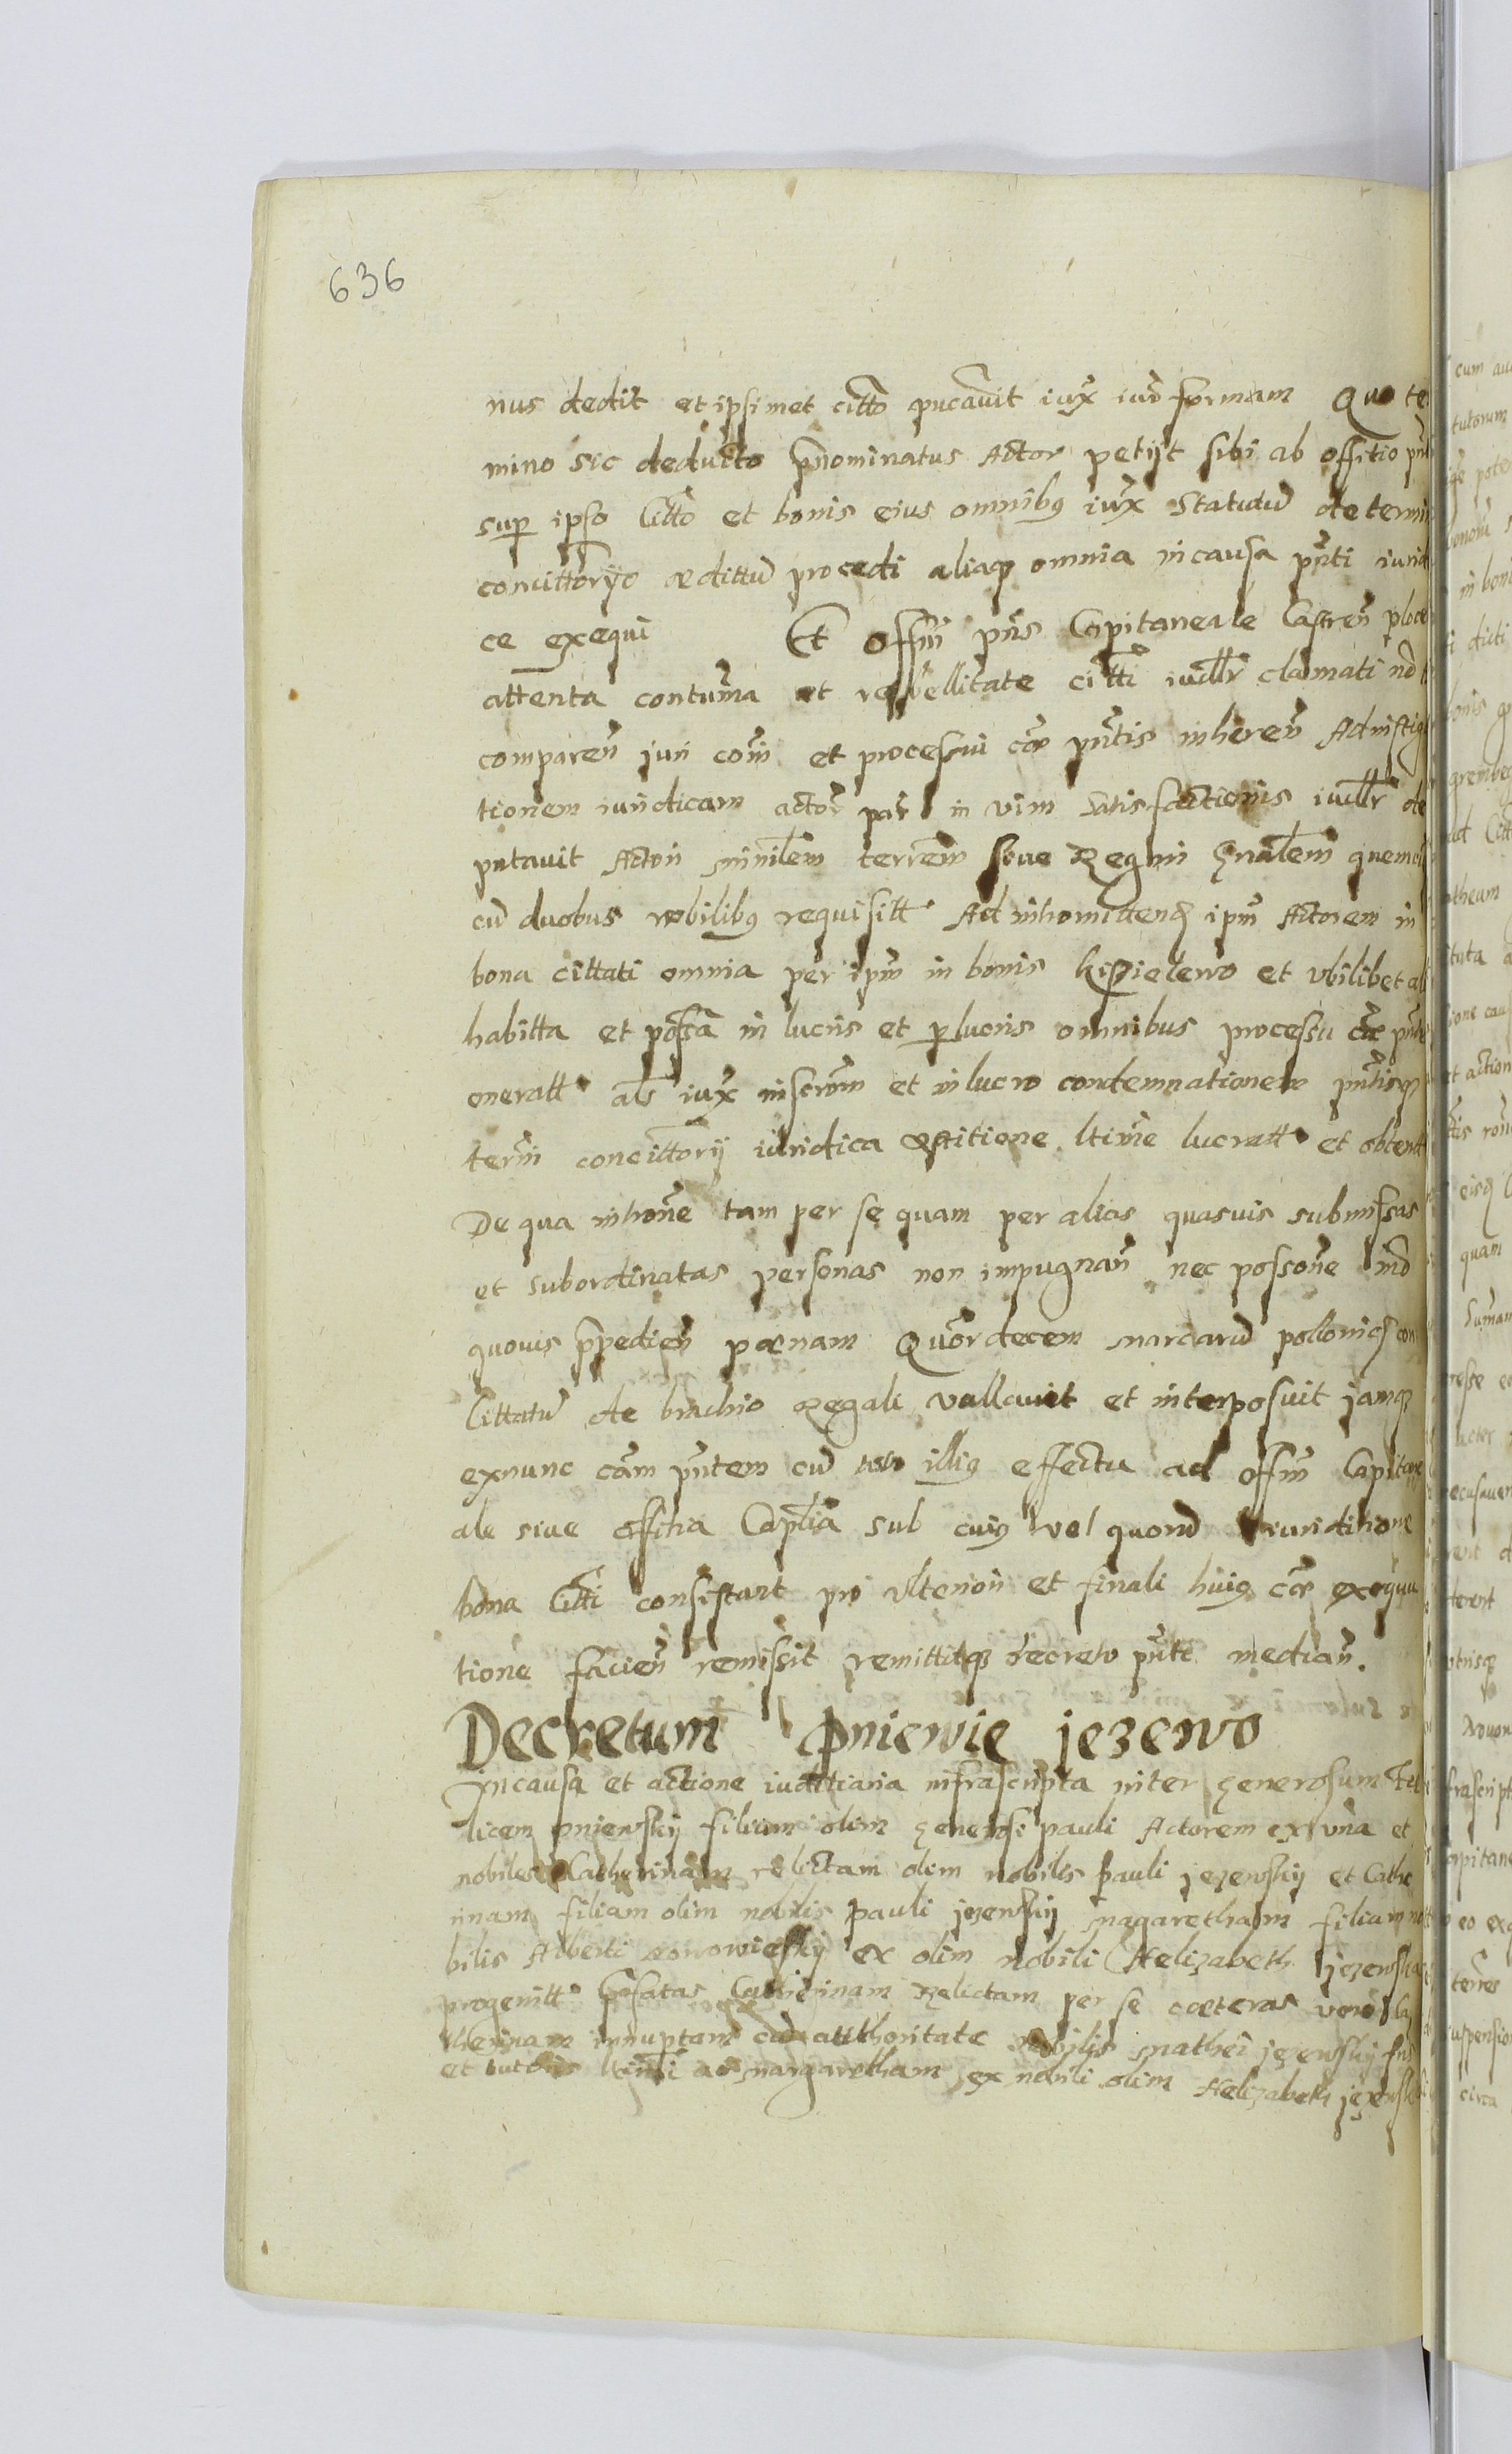 636
nus dedit et ipsimet citto pucavit iux iuris formam Quo te
mino sic deducto pnominatus Actor petijt sibi ab offitio pnti
sup ipso Citto et bonis eius omnibus iux Statutu determi
concittorijo ædittu procedi aliaq omnia in causa pnti iuridi
ce exequi Et Offm pns Capitaneale Castren ploce
attenta contuma et rebellitate citti iudllr clamati nd
comparen juri com et processui cæ pntis inheren Ad instiga
tionem iuridicam actor par in vim satisfactionis iudllr de
putavit Actori minilem terrem sive Regni gnalem quemcu
cu duobus nobilibus requisitt Ad intromittend ipm Actorem in
bona cittati omnia per ipm in bonis Kisielewo et vbilibet ali
habitta et possa in lucris et perlucris omnibus processu cæ pntis
oneratt als iux inscrom et in lucro condemnationem pntisq
termi concittorij iuridica
ltime lucratt et obtent
De qua introne tam per se quam per alias quasvis submissas
et subordinatas personas non impugnan nec possone md
quovis ppedien pænam Quordecem marcaru pollonics con
Cittatu de brachio Regali vallavit et interposuit jamq
exnunc cam pntem cu toto illius effectu ad offm Capitane
ale sive offitia Captlia sub cuius vel quoru iuriditione
bona Citti consistant pro vlteriori et finali huius cæ exequu
tione facien remissit remittitq decreto pnti median.
Decretum Pniewie jezewo
In causa et actione iudittiaria infrascripta inter generosum Fel
licem pniewskij filium olim generosi pauli Actorem ex vna et
nobiles Catherinam relictam olim nobilis Pauli jezewskij et Cathe
rinam filiam olim nobilis Pauli jezewskij Magaretham filiam no
bilis Alberti
ex olim nobili Helizabeth jezewska
progenitt
Catherinam Relictam per se cæteras vero Ca
therinam innuptam cu authoritate Nobilis Mathei jezewskij fris
et tutoris ltimi ac Margaretham ex nobili olim Helizabeth jezewska